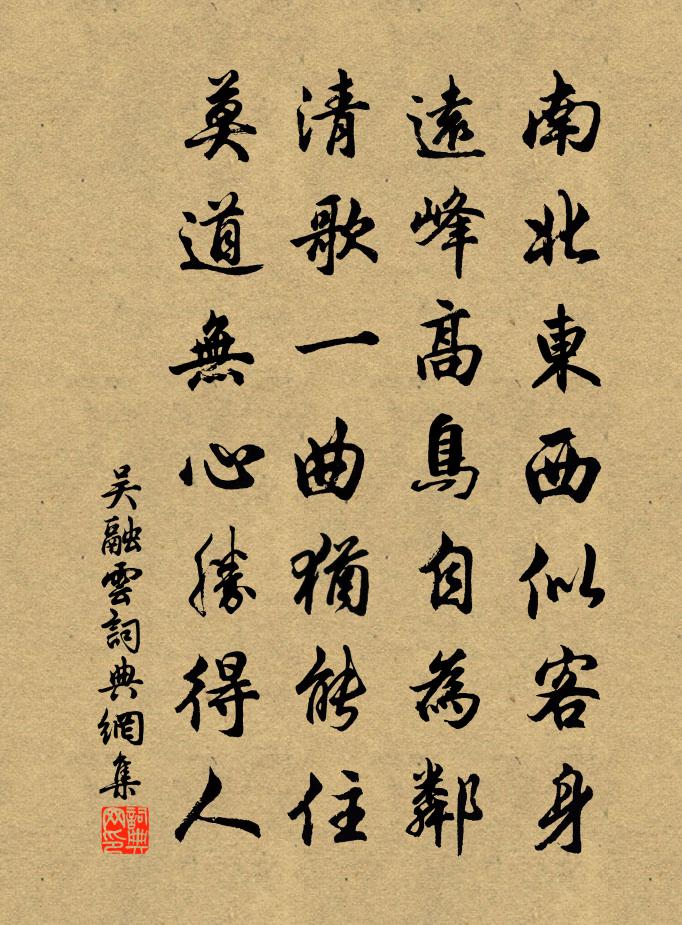 南北東西似客身
遠峰高鳥自為鄰
清歌一曲猶能住
莫道無心勝得人
吳融雲詞典網集
詞典網印